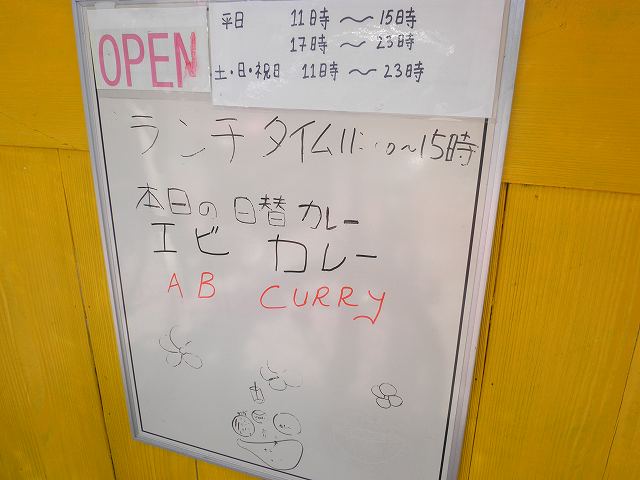 OPEN
平日 11時～15時
17時～23時
土・日・祝日 11時～23時
ランチタイム11:00～15時
本日の日替カレー
エビ カレー
AB CURRY